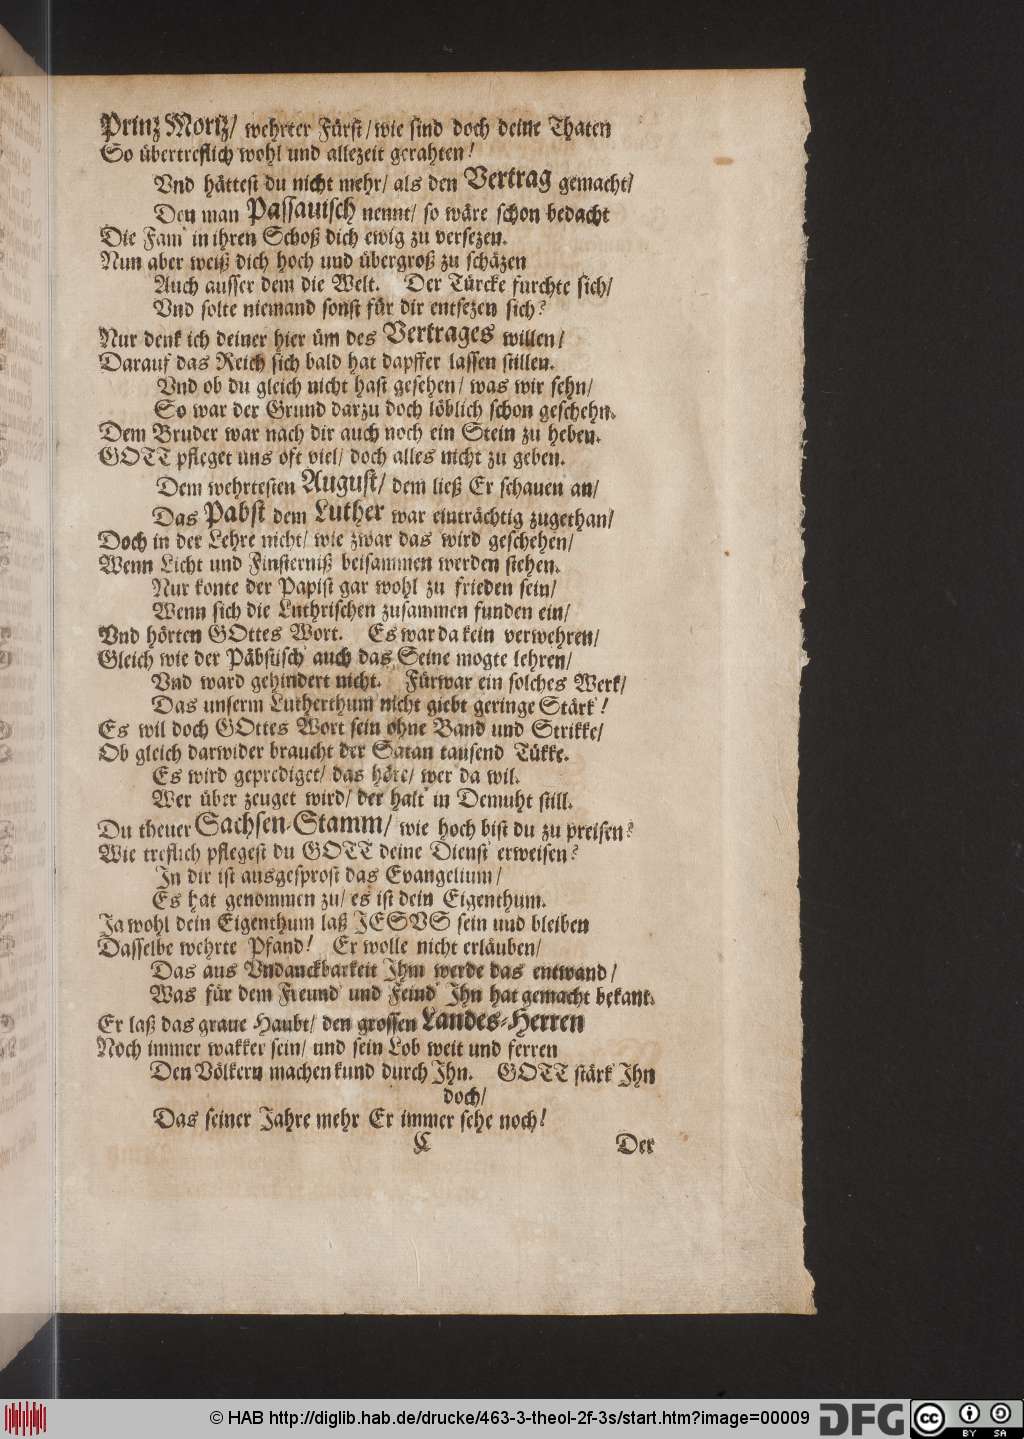 Prinz Moriz/ wehrter Fürst/wie sind doch deine Thaten
So übertreflich wohl und allezeit gerahten!
Vnd hättest du nicht mehr/ als den Vertrag gemacht/
Den man Passauisch nennt/ so wäre schon bedacht
Die Fam' in ihren Schoß dich ewig zu versezen.
Nun aber weiß dich hoch und übergroß zu schäzen
Auch ausser dem die Welt. Der Türcke furchte sich/
Vnd solte niemand sonst für dir entsezen sich?
Nur denk ich deiner hier üm des Vertrages willen/
Darauf das Reich sich bald hat dapffer lassen stillen.
Vnd ob du gleich nicht hast gesehen/ was wir sehn/
So war der Grund darzu doch löblich schon geschehn.
Dem Bruder war nach dir auch noch ein Stein zu heben.
GOTT pfleget uns oft viel/ doch alles nicht zu geben.
Dem wehrtesten August/ dem ließ Er schauen an/
Das Pabst dem Luther war einträchtig zugethan/
Doch in der Lehre nicht/ wie zwar das wird geschehen/
Wenn Licht und Finsterniß beisammen werden stehen.
Nur konte der Papist gar wohl zu frieden sein/
Wenn sich die Luthrischen zusammen funden ein/
Vnd hörten GOttes Wort. Es war da kein verwehren/
Gleich wie der Päbstisch' auch das Seine mogte lehren/
Vnd ward gehindert nicht. Fürwar ein solches Werk/
Das unserm Lutherthum nicht giebt geringe Stärk'!
Es wil doch GOttes Wort sein ohne Band und Strikke/
Ob gleich darwider braucht der Satan tausend Tükke.
Es wird geprediget/ das höre/ wer da wil.
Wer über zeuget wird/ der halt' in Demuht still.
Du theuer Sachsen-Stamm/ wie hoch bist du zu preisen?
Wie treflich pflegest du GOTT deine Dienst' erweisen?
In dir ist ausgesprost das Evangelium/
Es hat genommen zu/ es ist dein Eigenthum.
Ja wohl dein Eigenthum laß JESVS sein und bleiben
Dasselbe wehrte Pfand! Er wolle nicht erläuben/
Das aus Vndanckbarkeit Ihm werde das entwand/
Was für dem Freund' und Feind' Ihn hat gemacht bekant.
Er laß das graue Haubt/ den grossen Landes-Herren
Noch immer wakker sein/ und sein Lob weit und ferren
Den Völkern machen kund durch Ihn. GOTT stärk' Ihn
doch/
Das seiner Jahre mehr Er immer sehe noch!
C Der
© HAB http://diglib.hab.de/drucke/463-3-theol-2f-3s/start.htm?image=00009 DFG cc BY SA